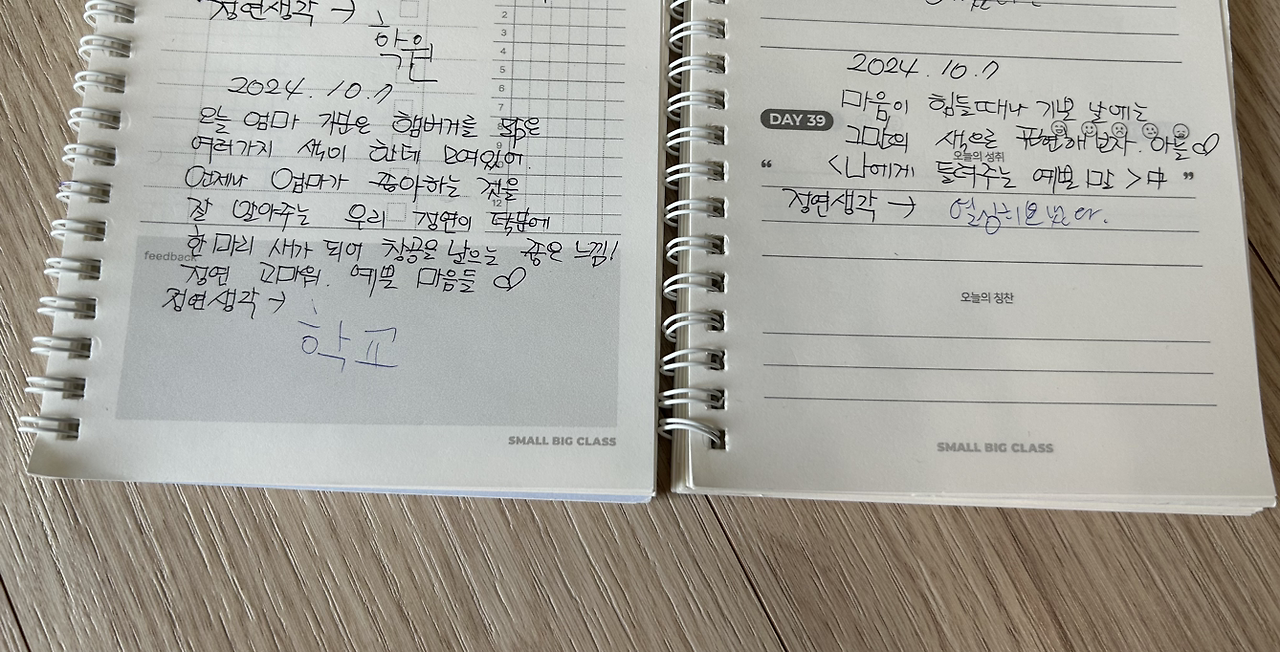 정연생각 →
학원
2024. 10. 7
오늘 엄마 기분은 햄버거를 닮은
여러가지 색이 한데 모여있어.
언제나 엄마가 좋아하는 것을
잘 알아주는 우리 정연이 덕분에
한 마리 새가 되어 창공을 날으는 좋은 느낌!
feedback
정연 고마워. 예쁜 마음들 ♡
정연생각 →
학교
SMALL BIG CLASS
2
3
4
5
6
7
9
12
2024. 10. 7
마음이 힘들때나 기쁜 날에는
DAY 39
그만의 색으로 표현해 보자. 아들 ♡
오늘의 성취
“ <나에게 들려주는 예쁜 말> 中 ”
정연생각 →
오늘의 칭찬
SMALL BIG CLASS